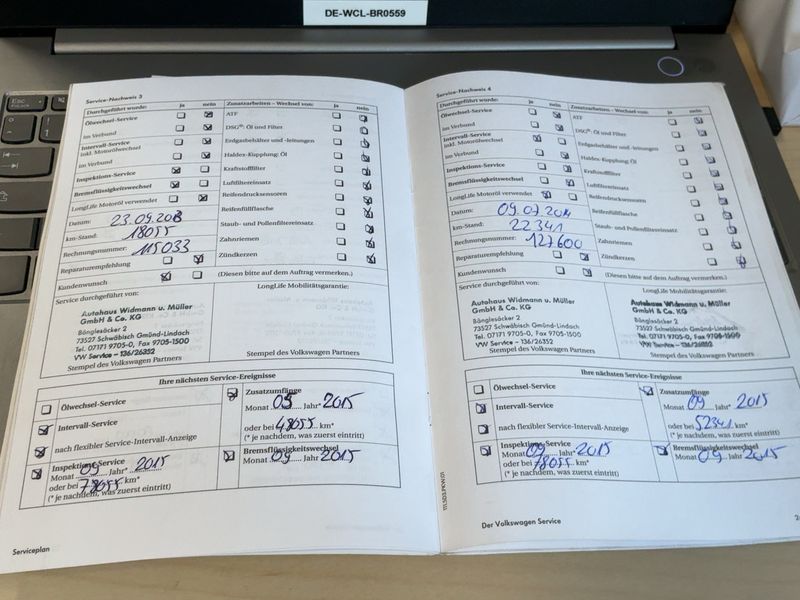 DE-WCL-BR0559
Esc
Service-Nachweis 3
Durchgeführt wurde: ja nein
Ölwechsel-Service
im Verbund
Intervall-Service
inkl. Motorölwechsel
im Verbund
Inspektions-Service
Bremsflüssigkeitswechsel
LongLife Motoröl verwendet
Datum: 23.09.2013
km-Stand: 18055
Rechnungsnummer: 115033
Reparaturempfehlung
Kundenwunsch
Zusatzarbeiten – Wechsel von: ja nein
ATF
DSG®: Öl und Filter
Erdgasbehälter und -leitungen
Haldex-Kupplung: Öl
Kraftstofffilter
Luftfiltereinsatz
Reifendrucksensoren
Reifenfüllflasche
Staub- und Pollenfiltereinsatz
Zahnriemen
Zündkerzen
(Diesen bitte auf dem Auftrag vermerken.)
Service durchgeführt von:
Autohaus Widmann u. Müller
GmbH & Co. KG
Bönglesäcker 2
73527 Schwäbisch Gmünd-Lindach
Tel. 07171 9705-0, Fax 9705-1500
VW Service – 136/26352
Stempel des Volkswagen Partners
LongLife Mobilitätsgarantie:
Stempel des Volkswagen Partners
Ihre nächsten Service-Ereignisse
Ölwechsel-Service
Intervall-Service
nach flexibler Service-Intervall-Anzeige
Inspektions-Service
Monat 09 Jahr* 2015
oder bei 78055 km*
(* je nachdem, was zuerst eintritt)
Zusatzumfänge
Monat Jahr* 2015
oder bei 48055 km*
(* je nachdem, was zuerst eintritt)
Bremsflüssigkeitswechsel
Monat 09 Jahr 2015
Serviceplan
Service-Nachweis 4
Durchgeführt wurde: ja nein
Ölwechsel-Service
im Verbund
Intervall-Service
inkl. Motorölwechsel
im Verbund
Inspektions-Service
Bremsflüssigkeitswechsel
LongLife Motoröl verwendet
Datum: 09.07.2014
km-Stand: 22341
Rechnungsnummer: 127600
Reparaturempfehlung
Kundenwunsch
Zusatzarbeiten – Wechsel von: ja nein
ATF
DSG®: Öl und Filter
Erdgasbehälter und -leitungen
Haldex-Kupplung: Öl
Kraftstofffilter
Luftfiltereinsatz
Reifendrucksensoren
Reifenfüllflasche
Staub- und Pollenfiltereinsatz
Zahnriemen
Zündkerzen
(Diesen bitte auf dem Auftrag vermerken.)
Service durchgeführt von:
Autohaus Widmann u. Müller
GmbH & Co. KG
Bönglesäcker 2
73527 Schwäbisch Gmünd-Lindach
Tel. 07171 9705-0, Fax 9705-1500
VW Service – 136/26352
Stempel des Volkswagen Partners
LongLife Mobilitätsgarantie:
Autohaus Widmann u. Müller
GmbH & Co. KG
Bönglesäcker 2
73527 Schwäbisch Gmünd-Lindach
Tel. 07171 9705-0, Fax 9705-1500
VW Service – 136/26352
Stempel des Volkswagen Partners
Ihre nächsten Service-Ereignisse
Ölwechsel-Service
Intervall-Service
nach flexibler Service-Intervall-Anzeige
Inspektions-Service
Monat 09 Jahr* 2015
oder bei 78055 km*
(* je nachdem, was zuerst eintritt)
Zusatzumfänge
Monat 09 Jahr* 2015
oder bei 52341 km*
(* je nachdem, was zuerst eintritt)
Bremsflüssigkeitswechsel
Monat 09 Jahr 2015
Der Volkswagen Service